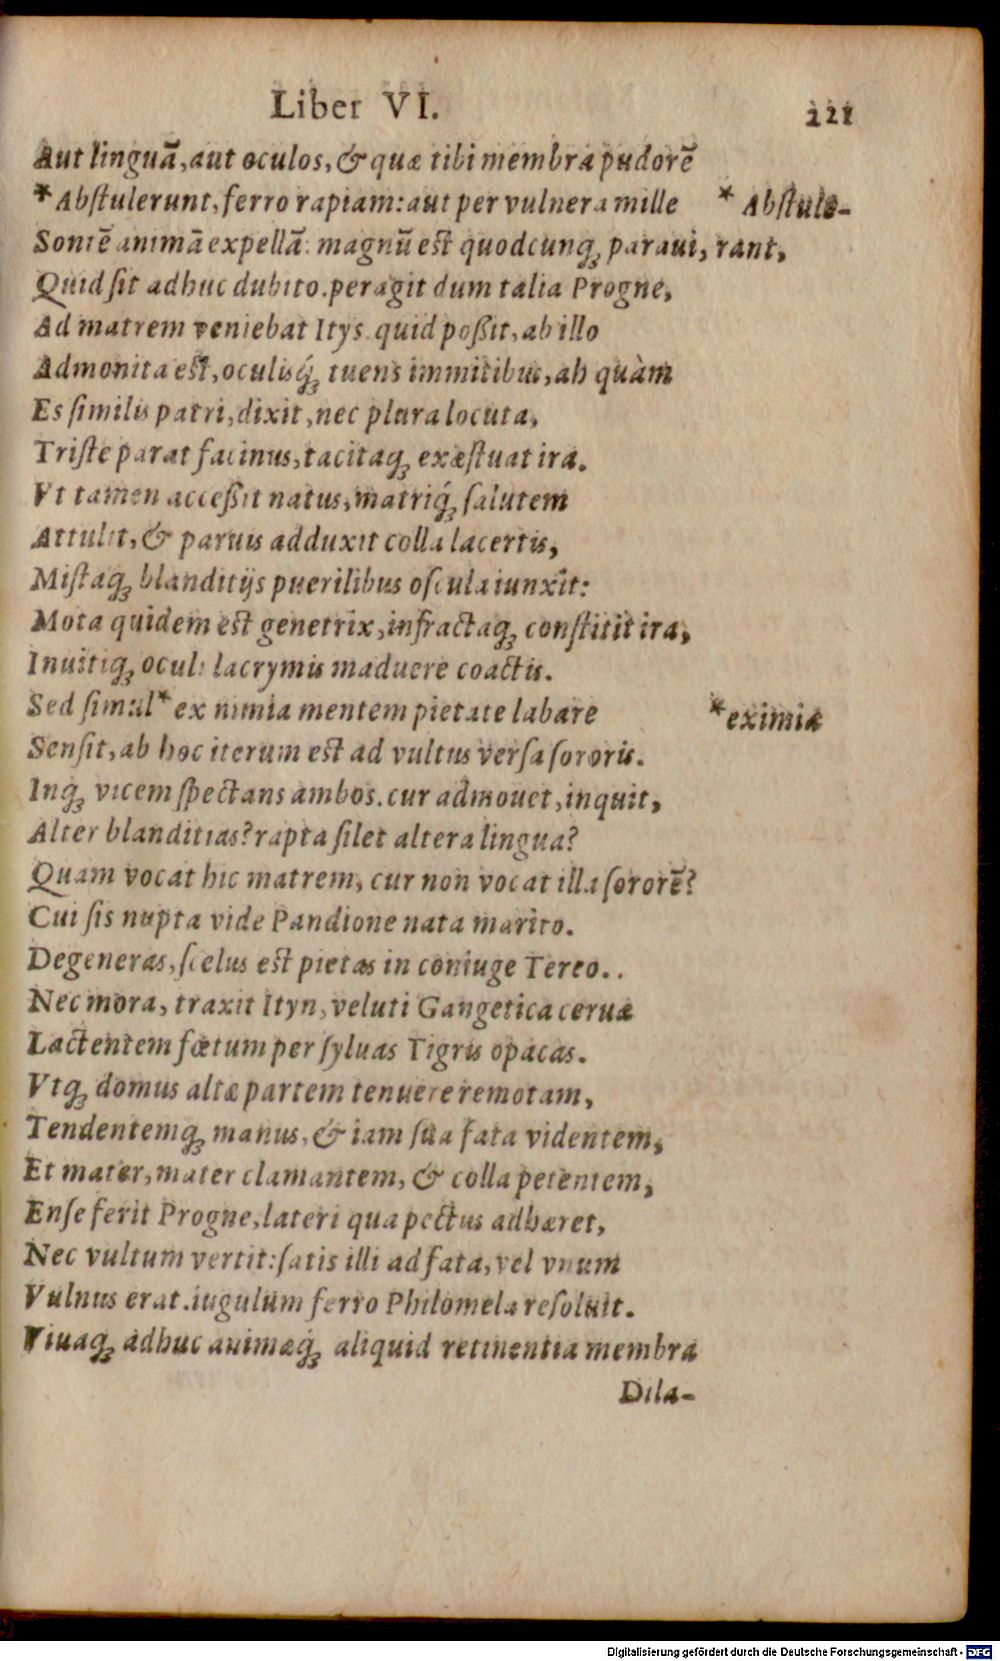 Liber VI. 121
Aut linguā, aut oculos, & quæ tibi membra pudorē
*Abstulerunt, ferro rapiam: aut per vulnera mille
* Abstule-
Sontē animā expellā: magnū est quodcunq; paraui,
rant,
Quid sit adhuc dubito. peragit dum talia Progne,
Ad matrem veniebat Itys. quid poßit, ab illo
Admonita est, oculisq́; tuens immitibus, ah quàm
Es similis patri, dixit, nec plura locuta,
Triste parat facinus, tacitaq; exæstuat ira.
Vt tamen acceßit natus, matriq́; salutem
Attulit, & paruis adduxit colla lacertis,
Mistaq; blanditijs puerilibus oscula iunxit:
Mota quidem est genetrix, infractaq; constitit ira,
Inuitiq; oculi lacrymis maduere coactis.
Sed simul * ex nimia mentem pietate labare
* eximia
Sensit, ab hoc iterum est ad vultus versa sororis.
Inq; vicem spectans ambos. cur admouet, inquit,
Alter blanditias? rapta silet altera lingua?
Quam vocat hic matrem, cur non vocat illa sororē?
Cui sis nupta vide Pandione nata marito.
Degeneras, scelus est pietas in coniuge Tereo..
Nec mora, traxit Ityn, veluti Gangetica ceruæ
Lactentem fœtum per syluas Tigris opacas.
Vtq; domus altæ partem tenuere remotam,
Tendentemq; manus, & iam sua fata videntem,
Et mater, mater clamantem, & colla petentem,
Ense ferit Progne, lateri qua pectus adhæret,
Nec vultum vertit: satis illi ad fata, vel vnum
Vulnus erat. iugulum ferro Philomela resoluit.
Viuaq; adhuc animæq́; aliquid retinentia membra
Dila-
Digitalisierung gefördert durch die Deutsche Forschungsgemeinschaft - DFG